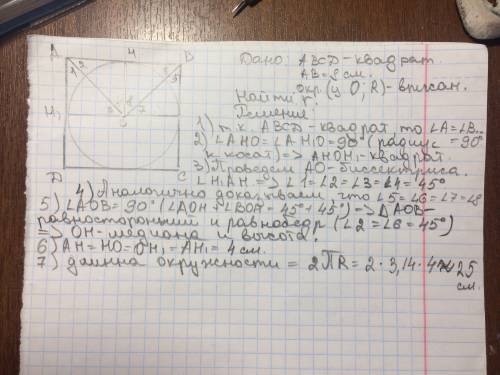 A
H
B
1
2
6
5
3
4
8
7
H₁
O
D
C
Дано: ABCD-квадрат.
AB=8 см.
окр.(у O; R)-вписан.
Найти r.
Решение:
1) т.к. ABCD-квадрат, то ∠A=∠B..
=90°
2) ∠AHO=∠AH₁O=90° (радиус
к касат) => AHOH₁-квадрат.
3) Проведём AO-биссектриса.
∠H₁AH => ∠1=∠2=∠3=∠4=45°
4) Аналогично доказываем, что ∠5=∠6=∠7=∠8
5) ∠AOB=90° (∠AOH+∠BOH=45°+45°) => △AOB-
равносторонний и равнобедр (∠2=∠6=45°)
=> OH-медиана и высота.
6) AH=HO=OH₁=AH₁=4 см.
7) длинна окружности = 2πR=2·3,14·4≈25
см.